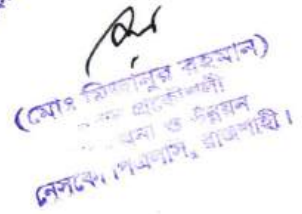 (মোঃ মিজানুর রহমান)
প্রকৌশলী
ও উন্নয়ন
নেসকো, পিএলসি, রাজশাহী।